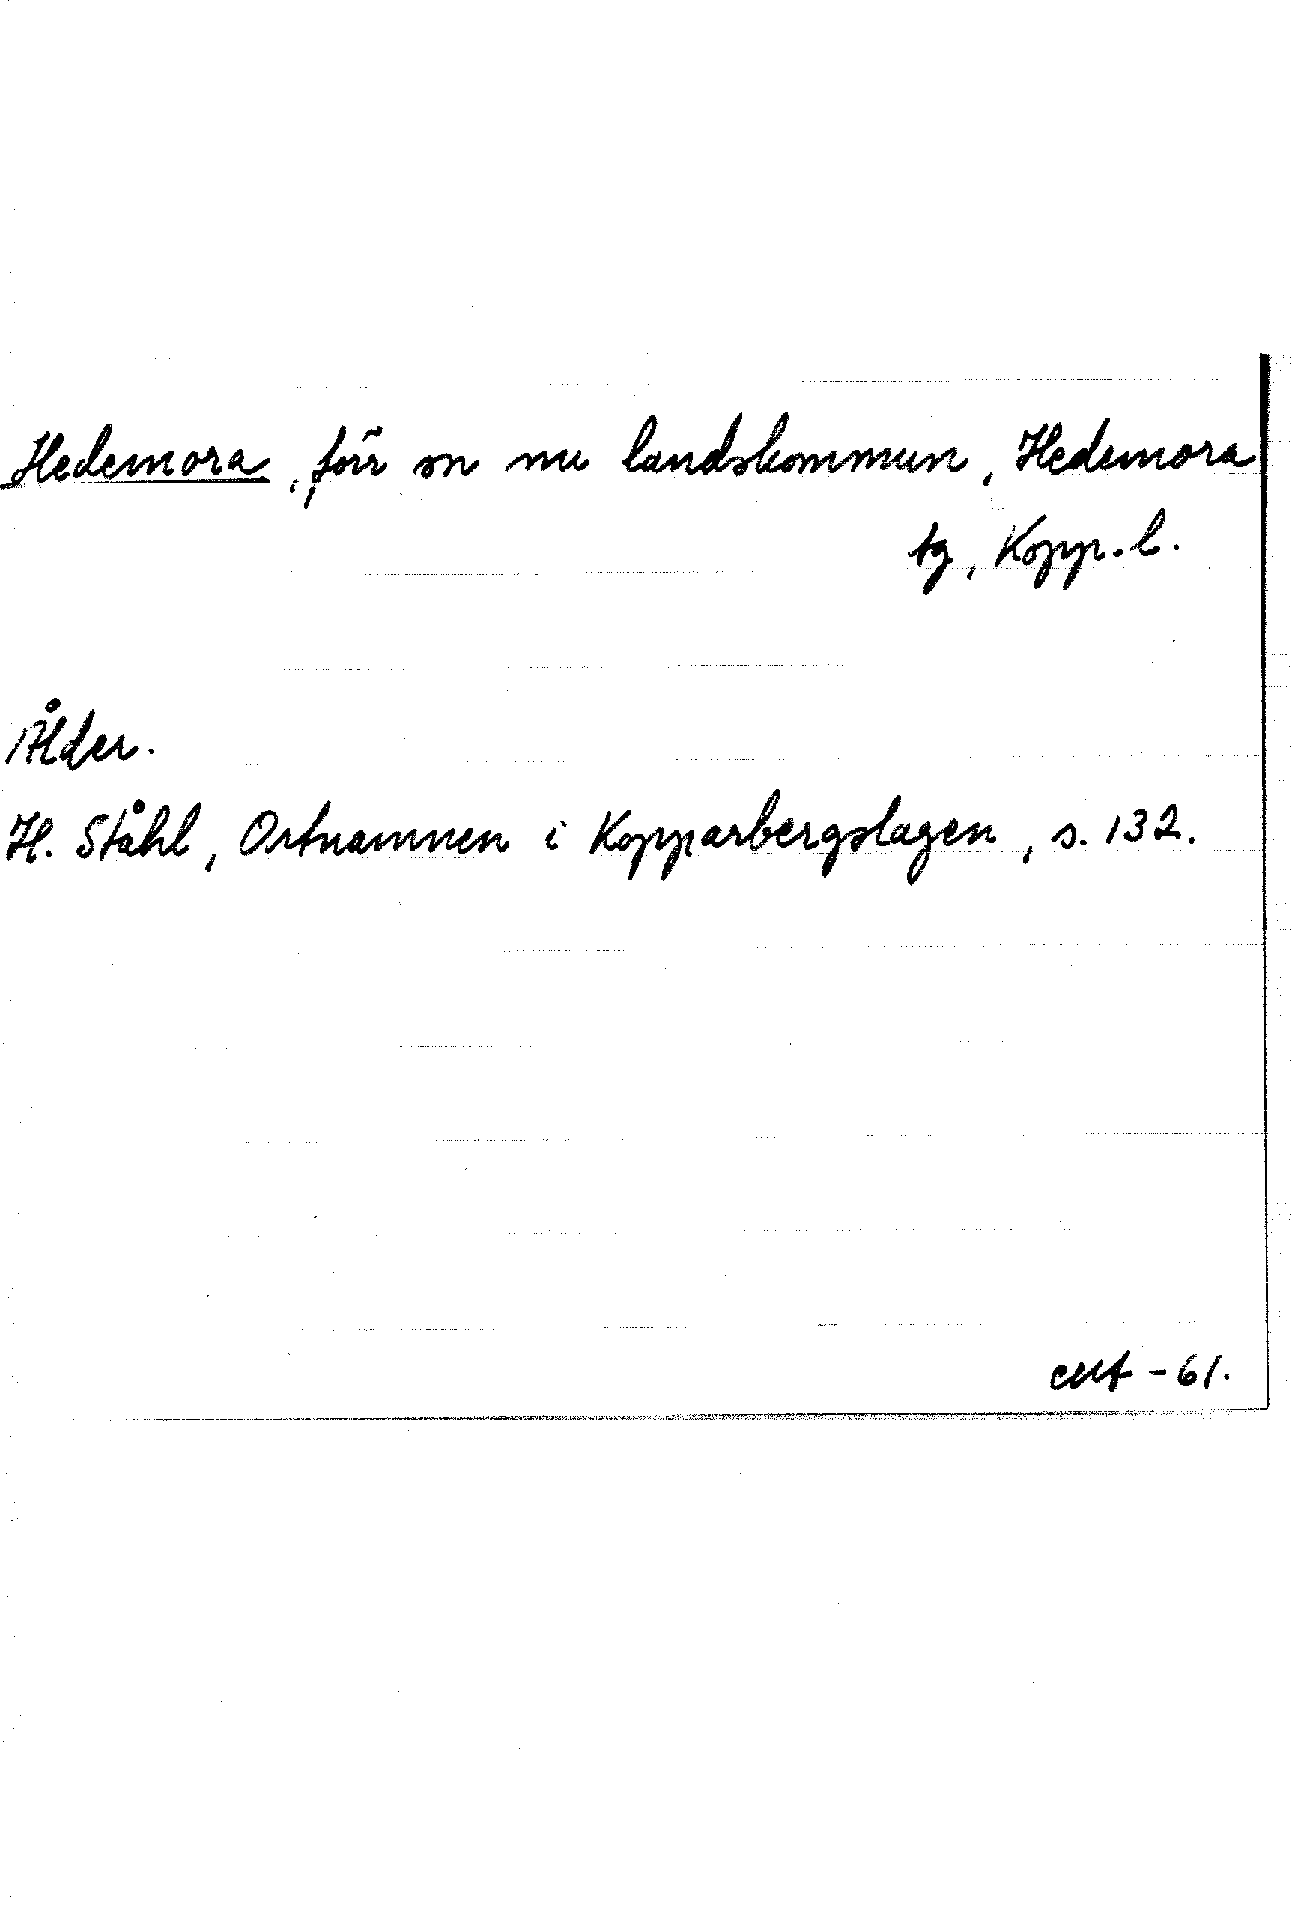 Hedemora, förr sn nu landskommun, Hedemora
tg, Kopp. l.
Ålder.
H. Ståhl, Ortnamnen i Kopparbergslagen, s. 132.
- 61.